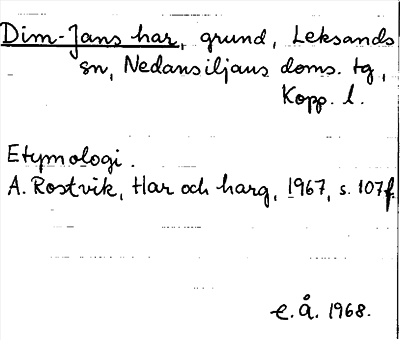 Dim-Jans har, grund, Leksands
sn, Nedansiljans doms. tg,
Kopp. l.
Etymologi.
A. Rostvik, Har och harg, 1967, s. 107f.
e. Å. 1968.